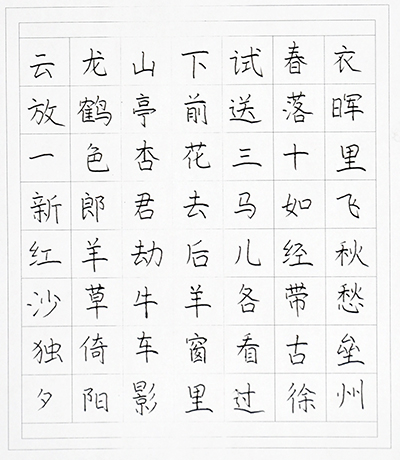 云龙山下试春衣
放鹤亭前送落晖
一色杏花三十里
新郎君去马如飞
红羊劫后儿经秋
沙草牛羊各带愁
独倚车窗看古垒
夕阳影里过徐州